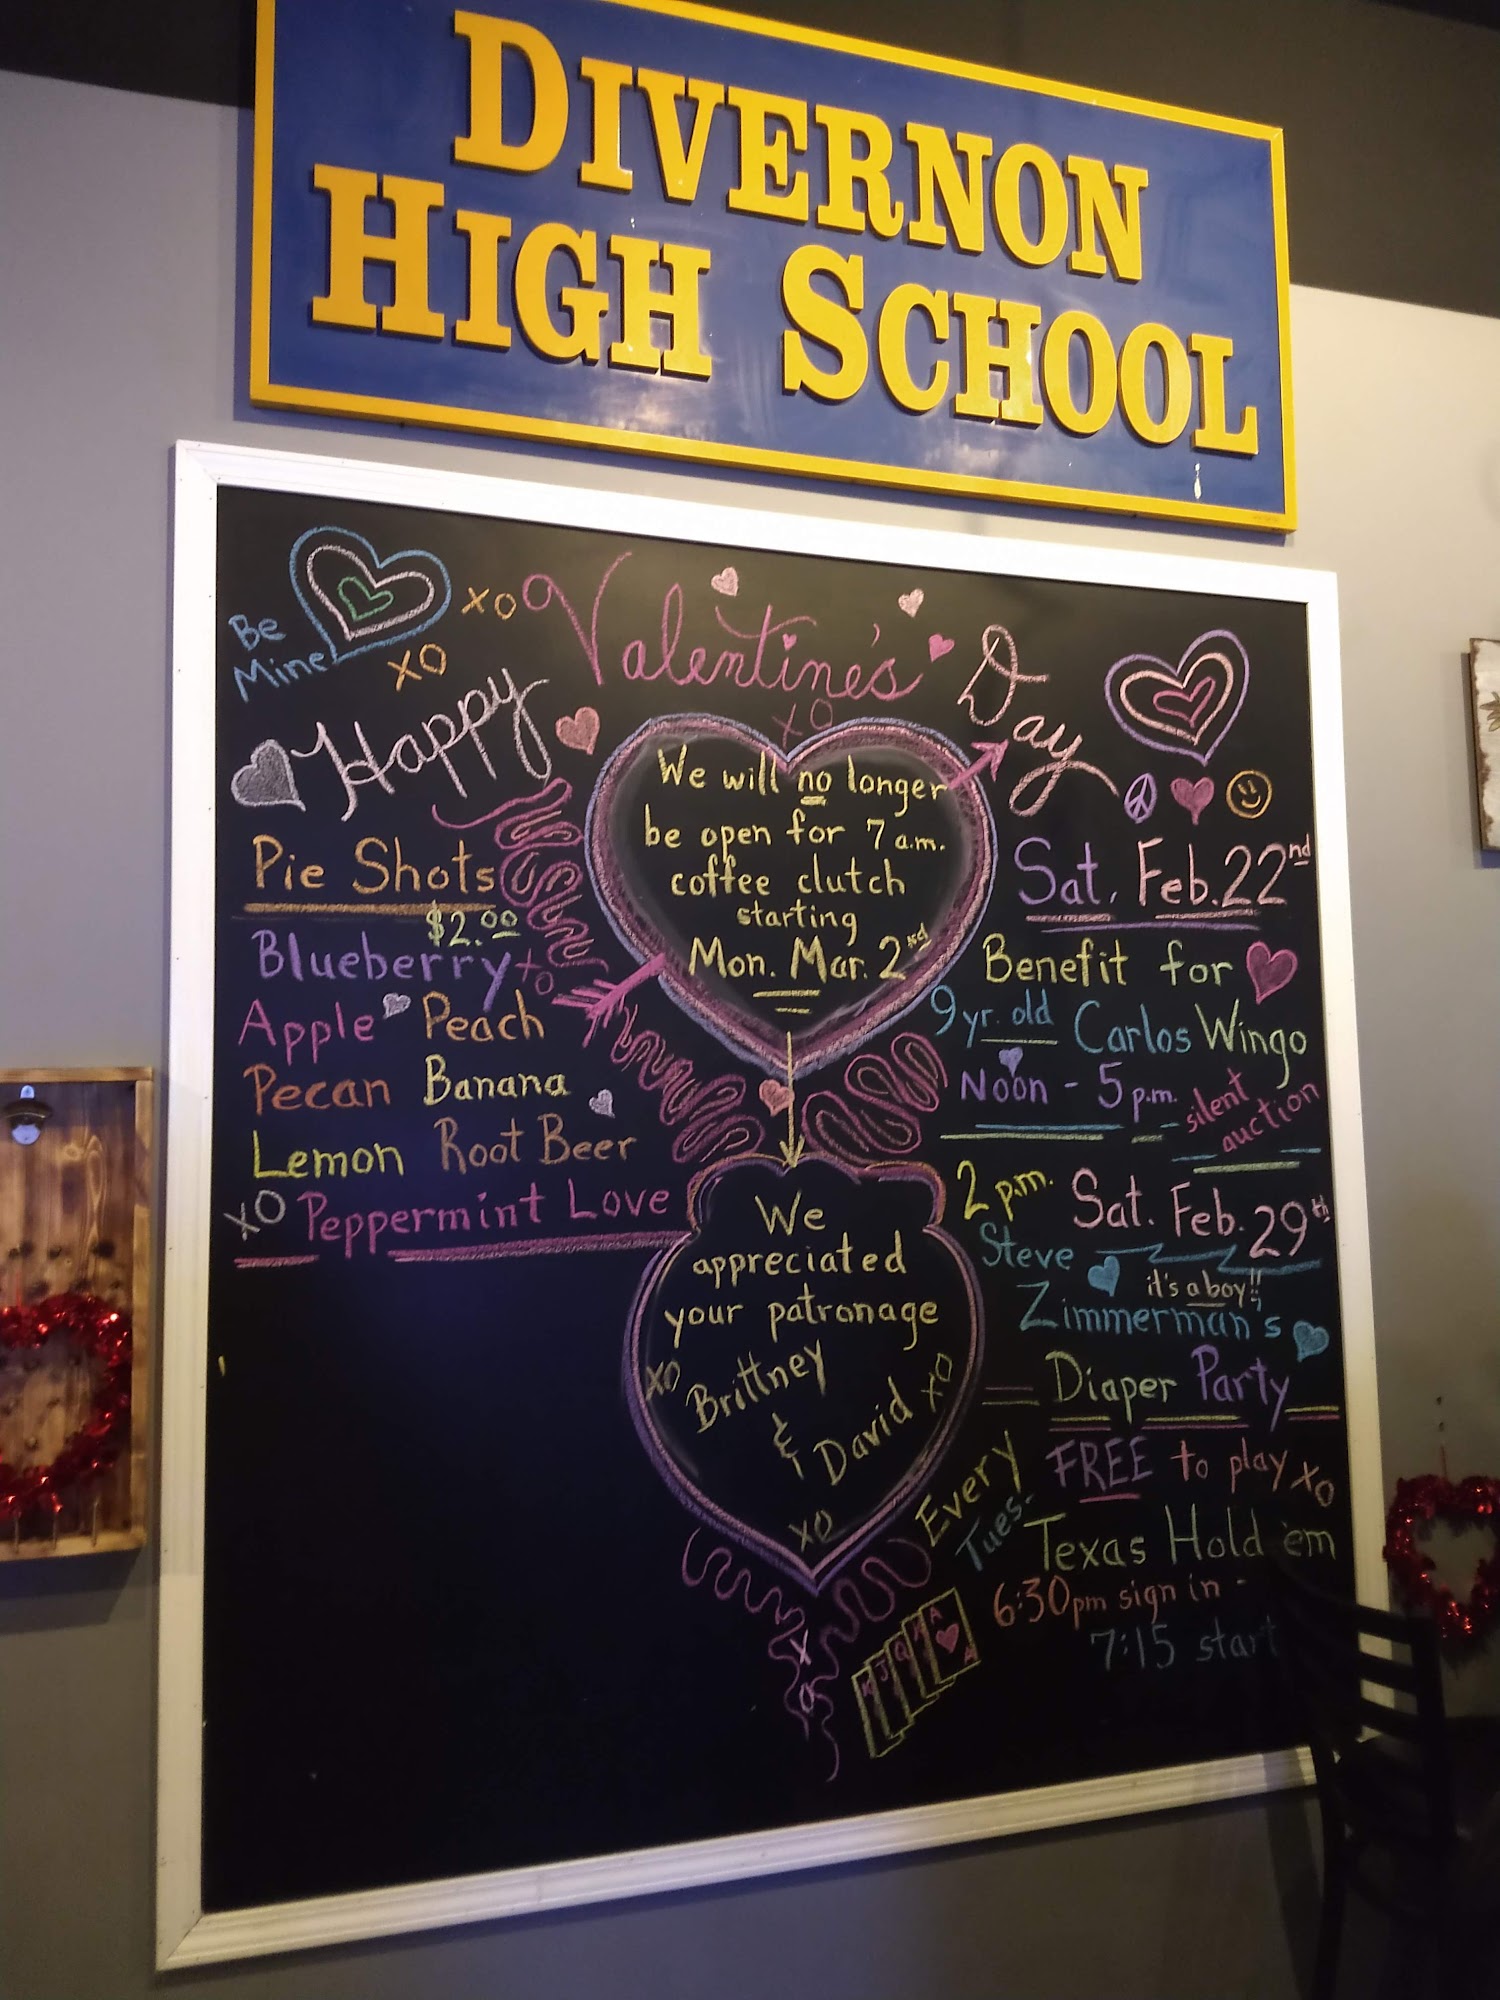 DIVERNON
HIGH SCHOOL
Be
Mine
XO
XO
Happy
Valentine's
Day
XO
Pie Shots
$2.00
Blueberry
xo
Apple Peach
Pecan Banana
Lemon Root Beer
XO Peppermint Love
We will no longer
be open for 7 a.m.
coffee clutch
starting
Mon. Mar. 2nd
We
appreciated
your patronage
XO Brittney
& David XO
XO
XO
Sat. Feb. 22nd
Benefit for
9 yr. old Carlos Wingo
Noon - 5 p.m. silent
auction
2 p.m. Sat. Feb. 29th
Steve
it's a boy!!
Zimmerman's
Diaper Party
Every FREE to play XO
Tues. Texas Hold 'em
6:30pm sign in -
7:15 start
K J Q A
A